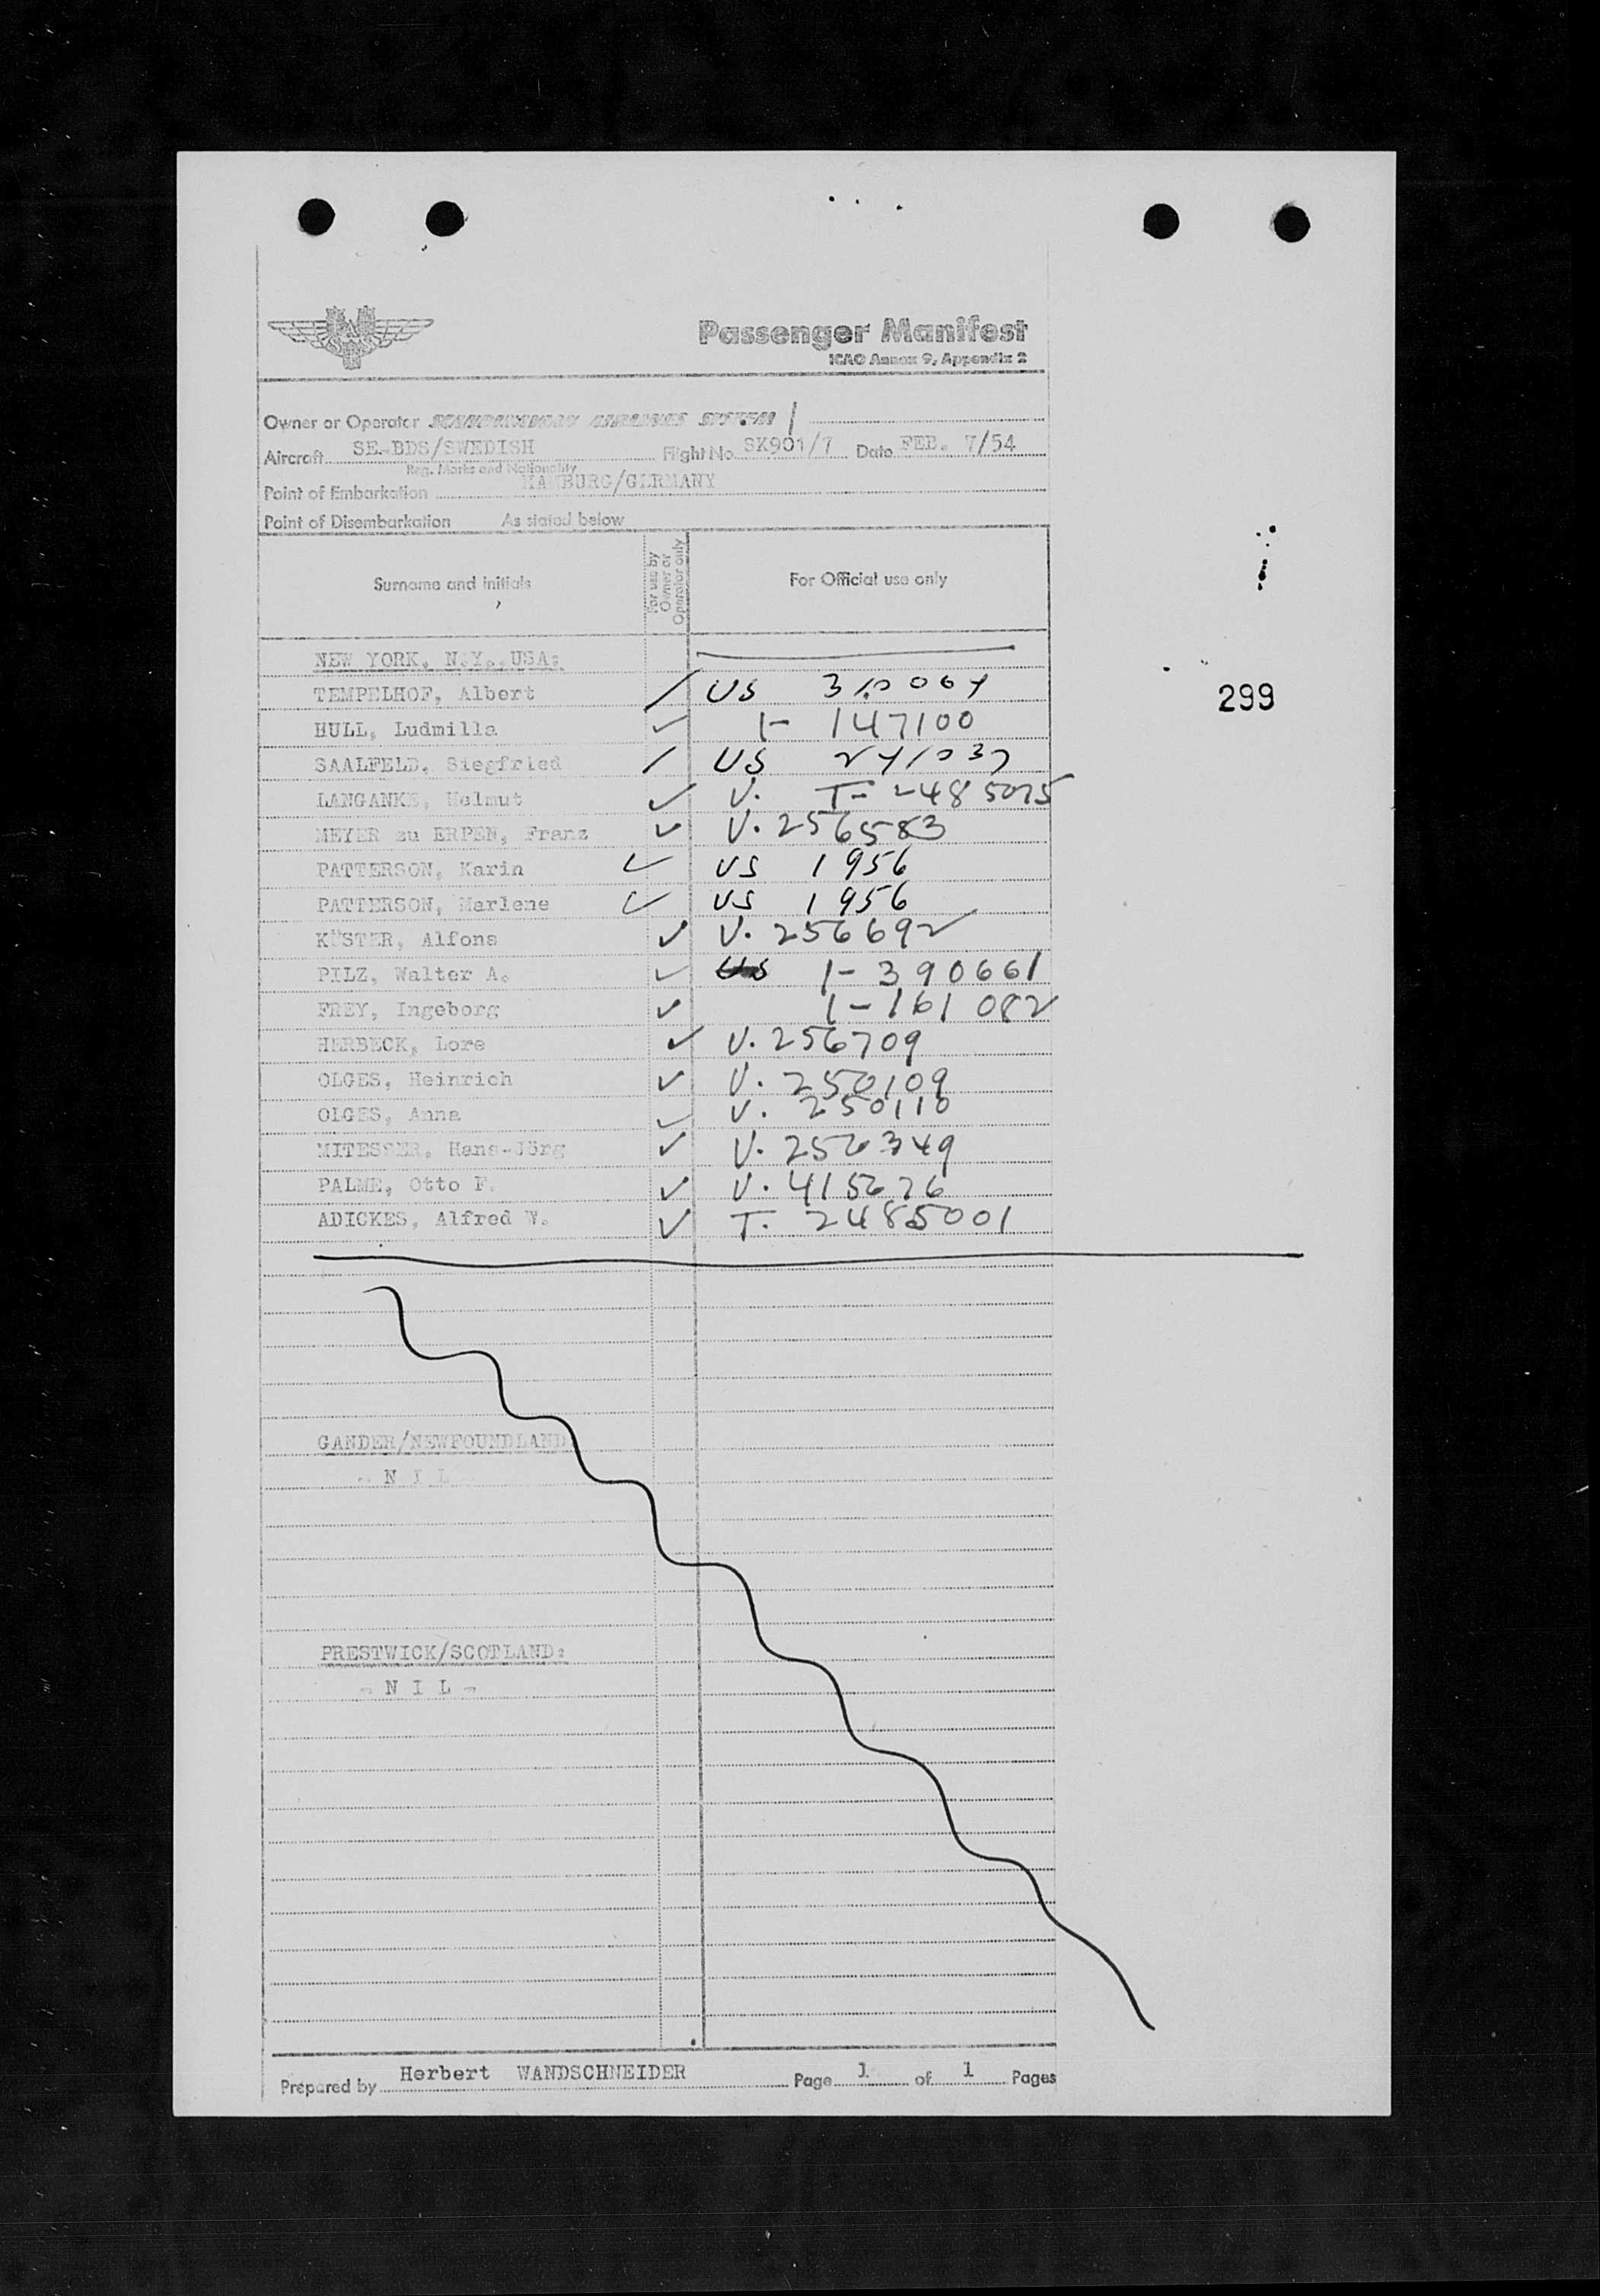 SAS
Passenger Manifest
ICAO Annex 9, Appendix 2
Owner or Operator SCANDINAVIAN AIRLINES SYSTEM
Aircraft SE-BDS/SWEDISH Flight No. SK901/7 Date FEB. 7/54
Reg. Marks and Nationality
Point of Embarkation HAMBURG/GERMANY
Point of Disembarkation As stated below
Surname and initials For use by Owner or Operator only For Official use only
NEW YORK, N.Y., USA:
299
TEMPELHOF, Albert US
HULL, Ludmilla 1- 147100
SAALFELD, Siegfried US 241037
LANGANKE, Helmut V. T-
MEYER zu ERPEN, Franz V. 256583
PATTERSON, Karin US 1956
PATTERSON, Marlene US 1956
KÜSTER, Alfons V. 256692
PILZ, Walter A. 1-390661
FREY, Ingeborg 1-161082
HERBECK, Lore V. 256709
OLGES, Heinrich V. 250109
OLGES, Anna V. 250110
MITESSER, Hans-Jörg V. 256349
PALME, Otto F. V. 415676
ADICKES, Alfred W. T. 2485001
GANDER/NEWFOUNDLAND
- N I L
PRESTWICK/SCOTLAND:
- N I L -
Prepared by Herbert WANDSCHNEIDER Page 1 of 1 Pages